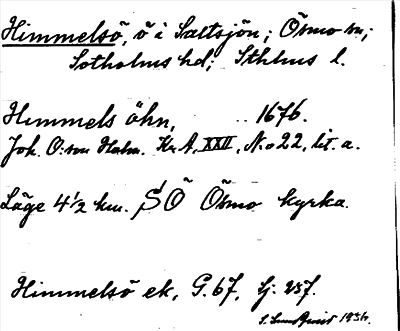 Himmelsö, ö i Saltsjön; Ösmo sn;
Sotholms hd; Sthlms l.
Himmels öhn, 1676.
Joh. O:son Holm. Kr. A. XXII, N:o 22, lit. a.
Läge 4 1/2 km. SÖ Ösmo kyrka.
Himmelsö ek, G. 67, Sj: 257.
S. Lundqvist 1936.